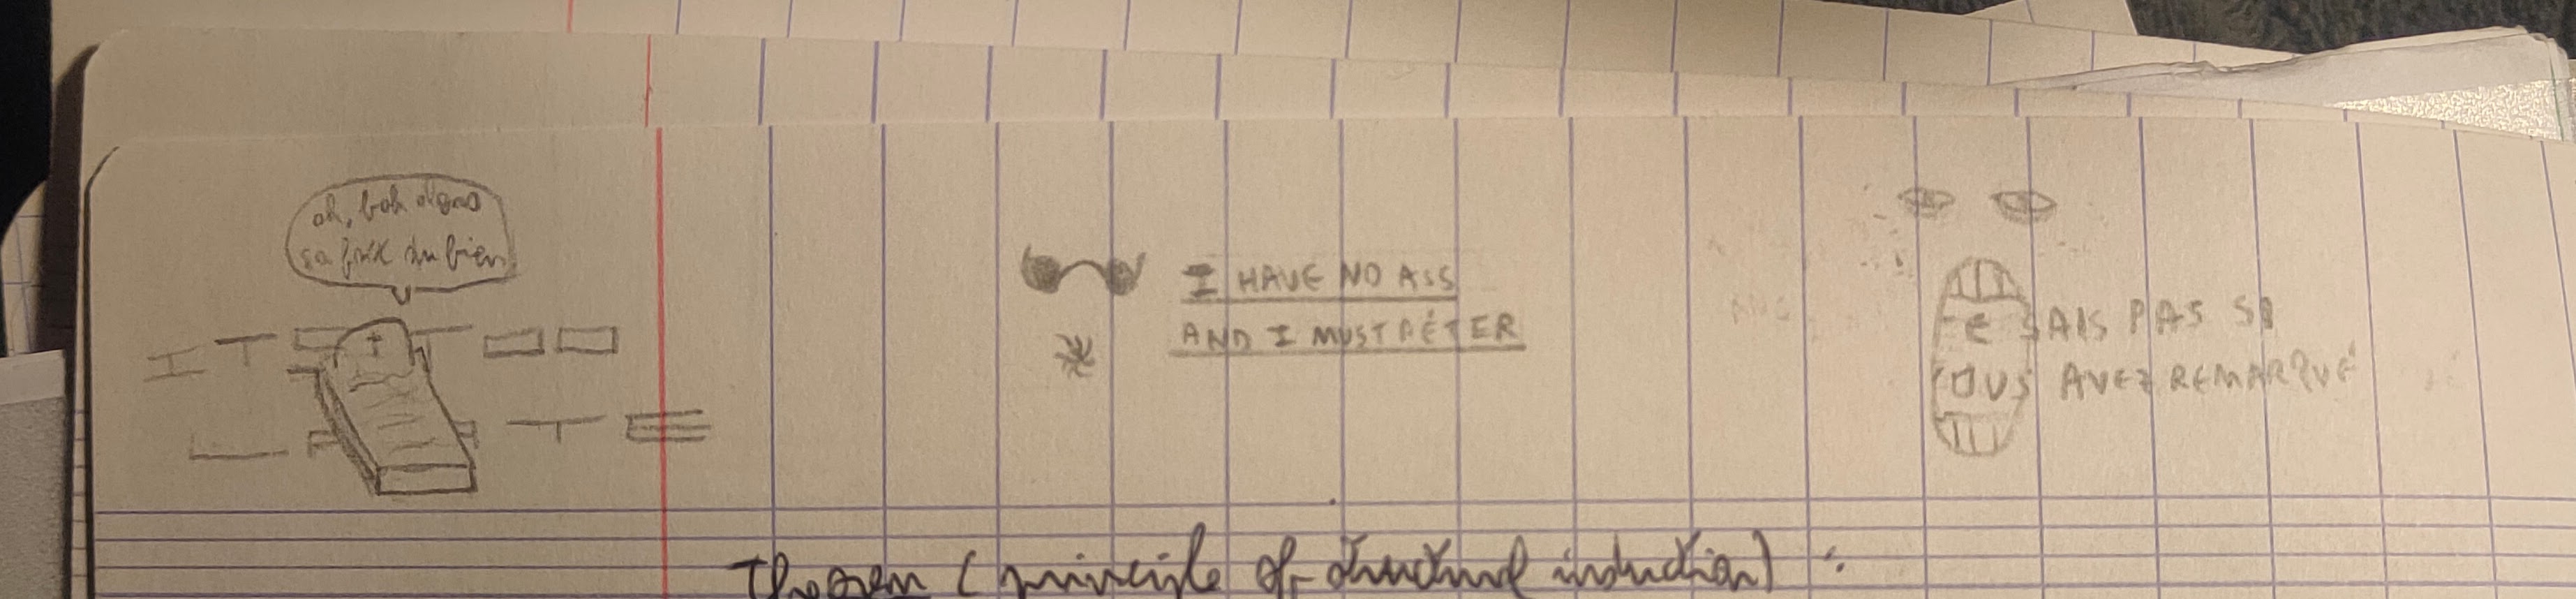 oh, bah alors
sa fait du bien
I HAVE NO ASS
AND I MUST PÉTER
E SAIS PAS SI
OUS AVEZ REMARQUÉ
Theorem (principle of structural induction) :